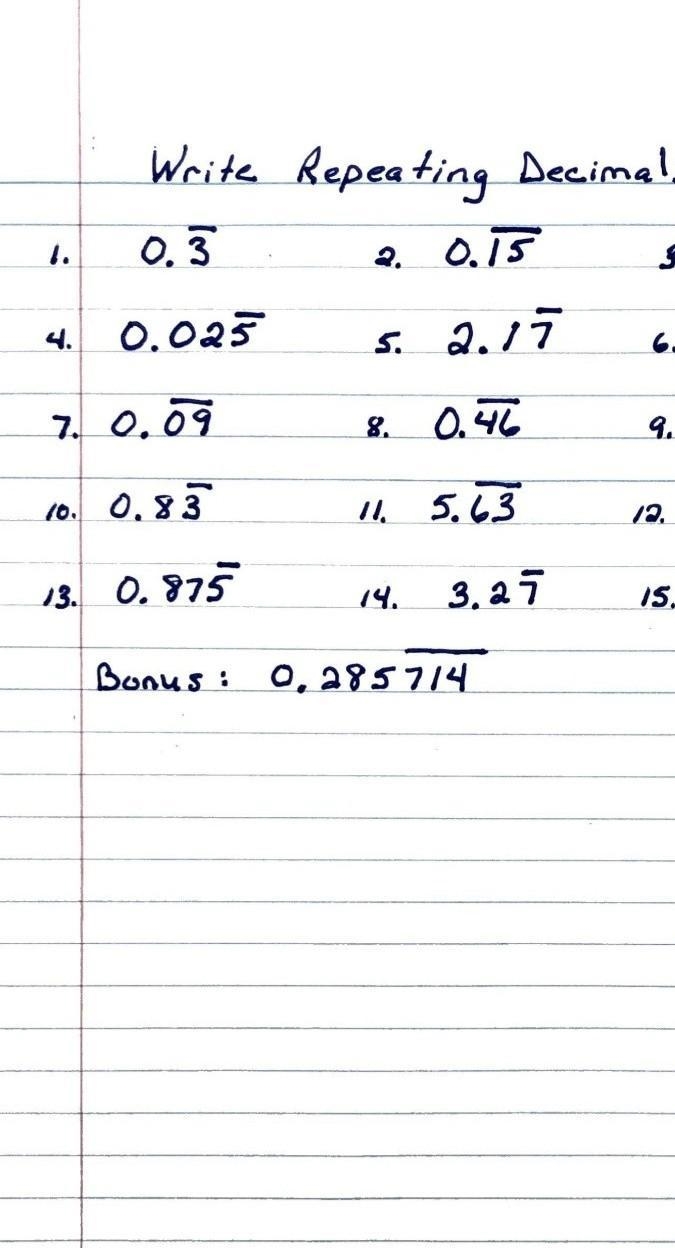 Write Repeating Decimal
1. 0.3̅ 2. 0.1̅5̅
4. 0.025̅ 5. 2.17̅ 6.
7. 0.0̅9̅ 8. 0.4̅6̅ 9.
10. 0.83̅ 11. 5.6̅3̅ 12.
13. 0.875̅ 14. 3.27̅ 15.
Bonus: 0.2857̅1̅4̅